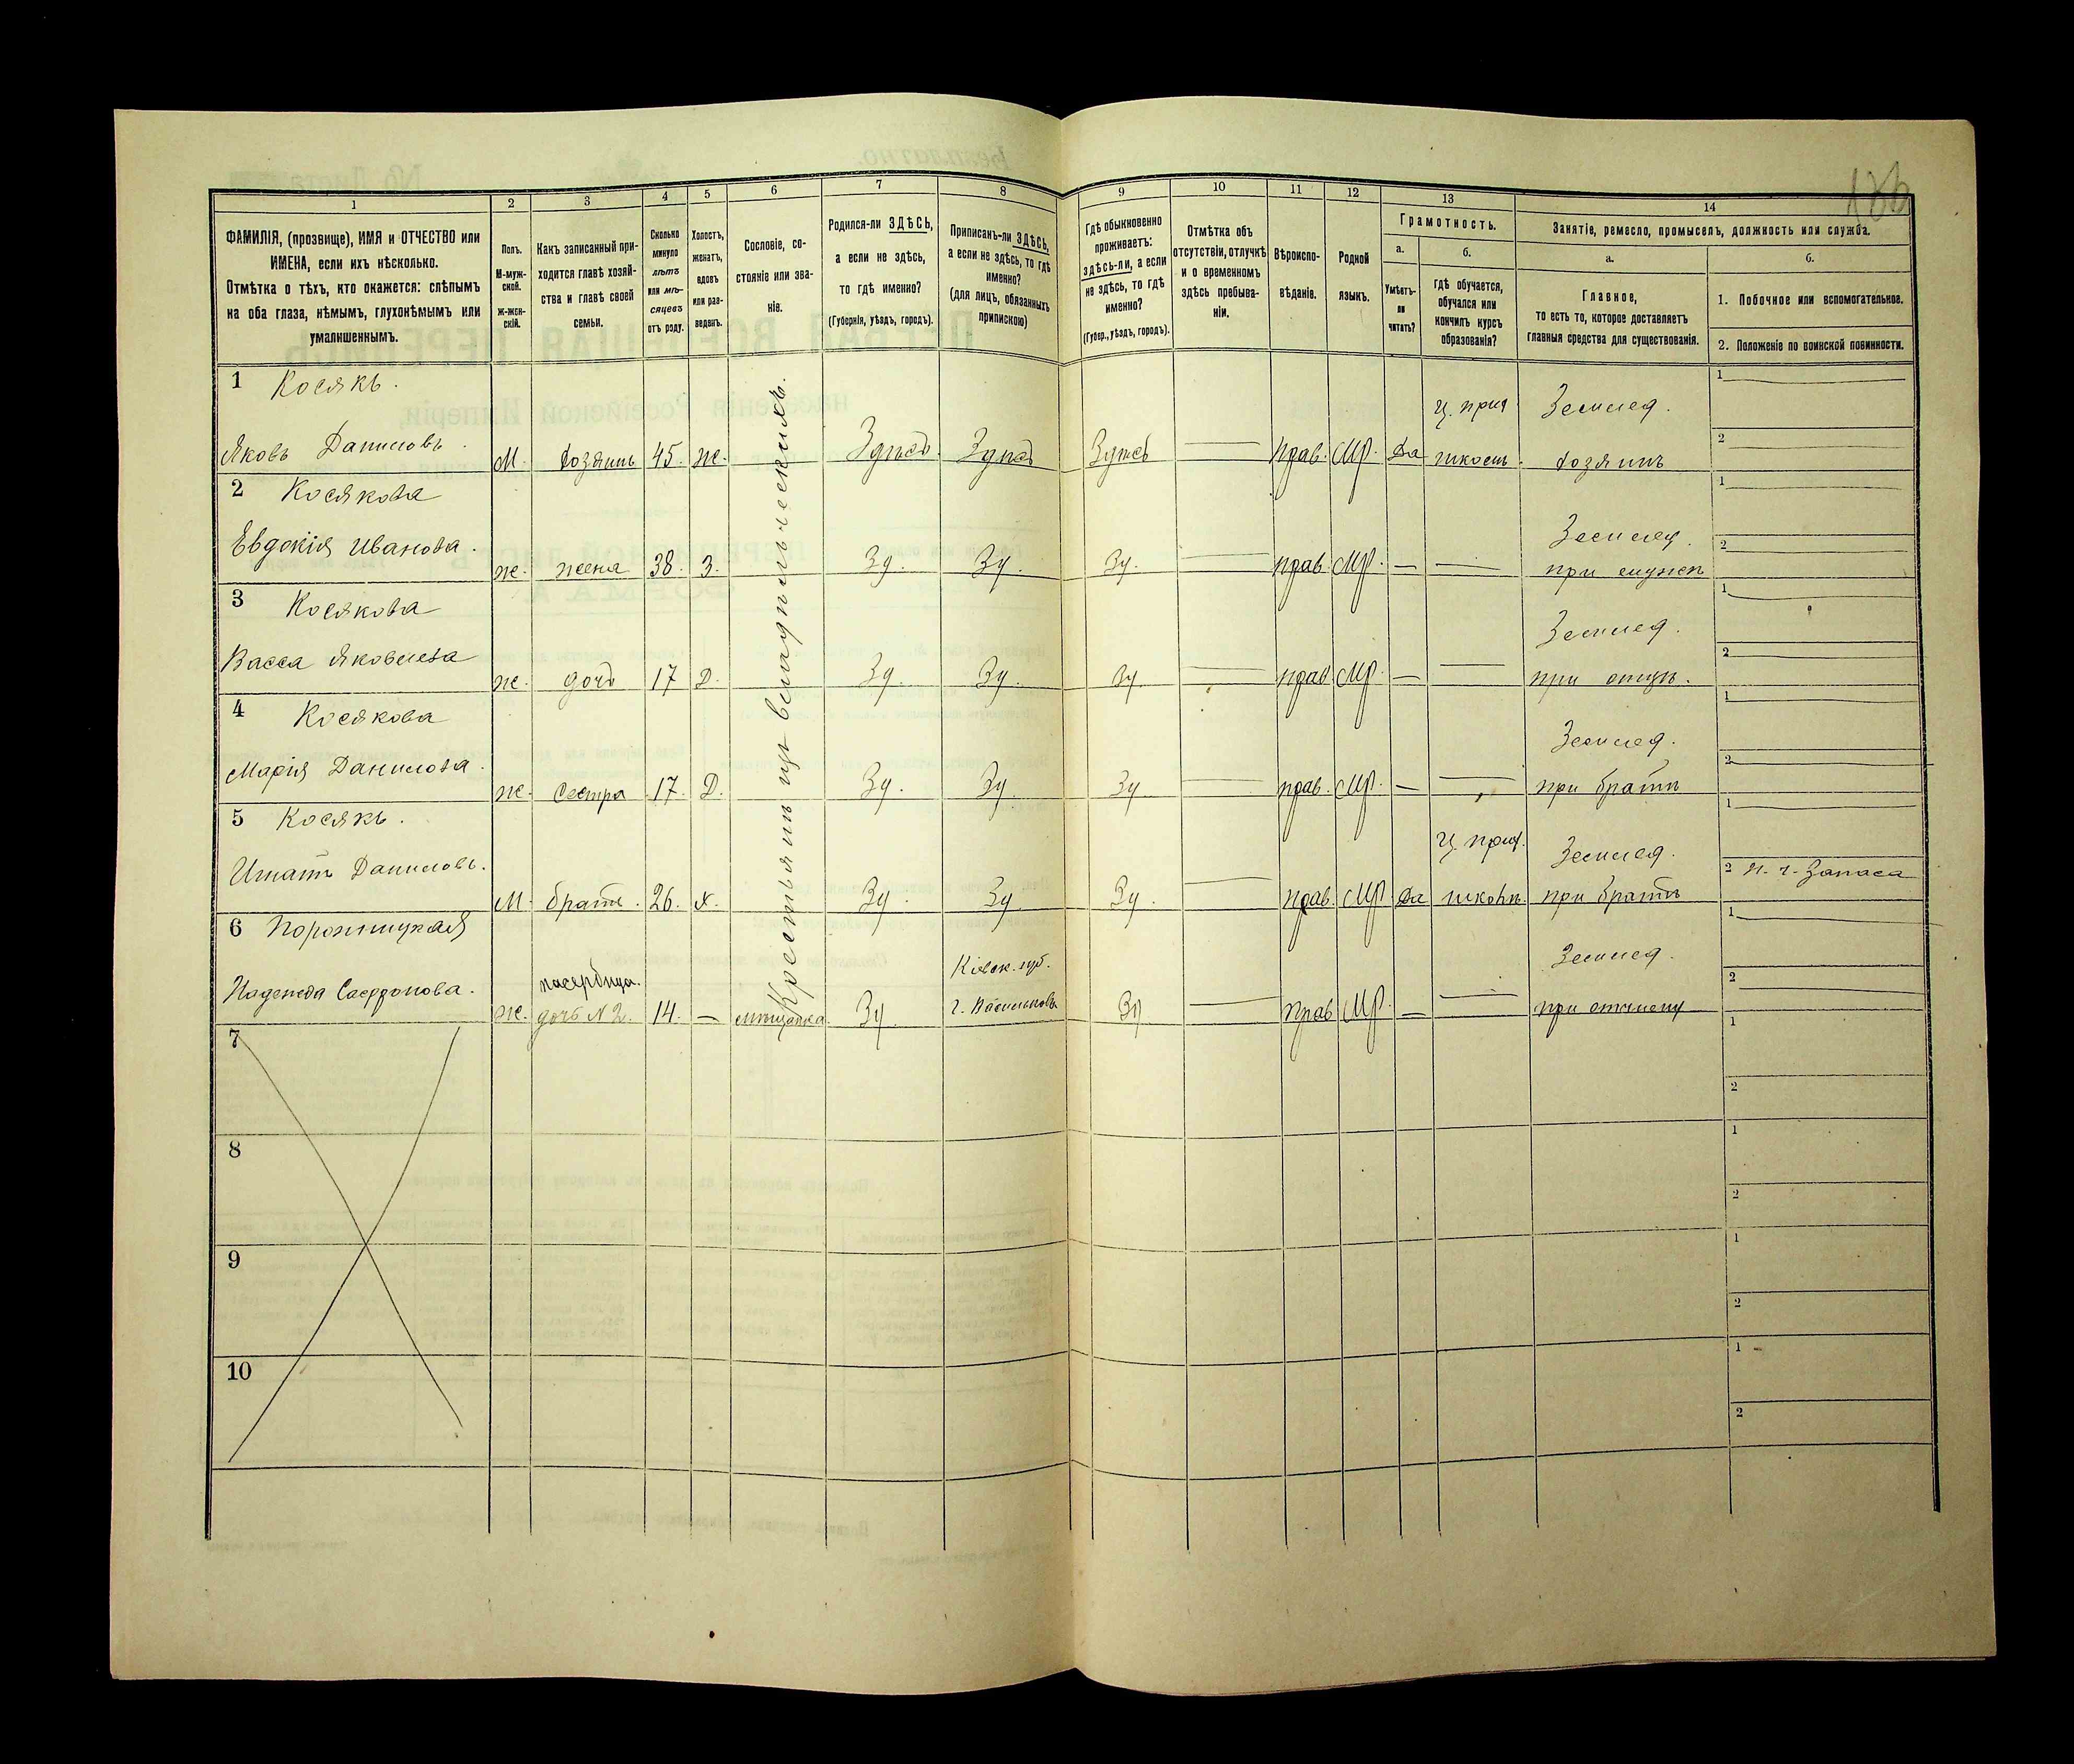 186
1
2
3
4
5
6
7
8
9
10
11
12
13
14
ФАМИЛІЯ, (прозвище), ИМЯ и ОТЧЕСТВО или
ИМЕНА, если ихъ нѣсколько.
Отмѣтка о тѣхъ, кто окажется: слѣпымъ
на оба глаза, нѣмымъ, глухонѣмымъ или
умалишеннымъ.
Полъ.
М-муж-
ской.
ж-жен-
скій.
Какъ записанный при-
ходится главѣ хозяй-
ства и главѣ своей
семьи.
Сколько
минуло
лѣтъ
или мѣ-
сяцевъ
отъ роду.
Холостъ,
женатъ,
вдовъ
или раз-
веденъ.
Сословіе, со-
стояніе или зва-
ніе.
Родился-ли ЗДѢСЬ,
а если не здѣсь,
то гдѣ именно?
(Губернія, уѣздъ, городъ).
Приписанъ-ли ЗДѢСЬ,
а если не здѣсь, то гдѣ
именно?
(для лицъ, обязанныхъ
припискою)
Гдѣ обыкновенно
проживаетъ:
здѣсь-ли, а если
не здѣсь, то гдѣ
именно?
(Губер., уѣздъ, городъ).
Отмѣтка объ
отсутствіи, отлучкѣ
и о временномъ
здѣсь пребыва-
ніи.
Вѣроиспо-
вѣданіе.
Родной
языкъ.
Грамотность.
а.
Умѣетъ-
ли
читать?
б.
гдѣ обучается,
обучался или
кончилъ курсъ
образованія?
Занятіе, ремесло, промыселъ, должность или служба.
а.
Главное,
то есть то, которое доставляетъ
главныя средства для существованія.
б.
1. Побочное или вспомогательное.
2. Положеніе по воинской повинности.
Крестьянинъ изъ владѣльческихъ.
1 Косякъ. Ц. прих Землед. 1
Яковъ Даниловъ. М. хозяинъ 45. ж. Здѣсь Здѣсь Здѣсь — Прав. Мр. Да школѣ. хозяинъ 2
2 Косякова Землед. 1
Евдокія Иванова. ж. жена 38. З. Зд. Зд. Зд. — прав. Мр. — — при мужѣ 2
3 Косякова Землед. 1
Васса Яковлева ж. дочь 17 Д. Зд. Зд. Зд. — прав Мр. — — при отцѣ. 2
4 Косякова Землед. 1
Марія Данилова. ж. сестра 17. Д. Зд. Зд. Зд. — прав. Мр. — — при братѣ 2
5 Косякъ. Ц. прих. Землед. 1
Игнатъ Даниловъ. М. братъ. 26. х. Зд. Зд. Зд. — прав. Мр. Да школѣ. при братѣ 2 н. ч. запаса
6 падчерица. Кіевск. губ. Землед. 1
Надежда Сафронова. ж. дочь №2. 14. — мѣщанка Зд. г. Васильковъ Зд — Прав Мр. — — при отчиму 2
7 1
2
8 1
2
9 1
2
10 1
2